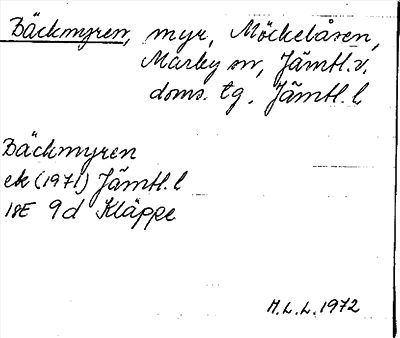 Bäckmyren, myr, Möckelåsen,
Marby sn, Jämtl.v.
doms. tg, Jämtl. l
Bäckmyren
ek (1971) Jämtl. l
18E 9d Kläppe
M.L.L. 1972